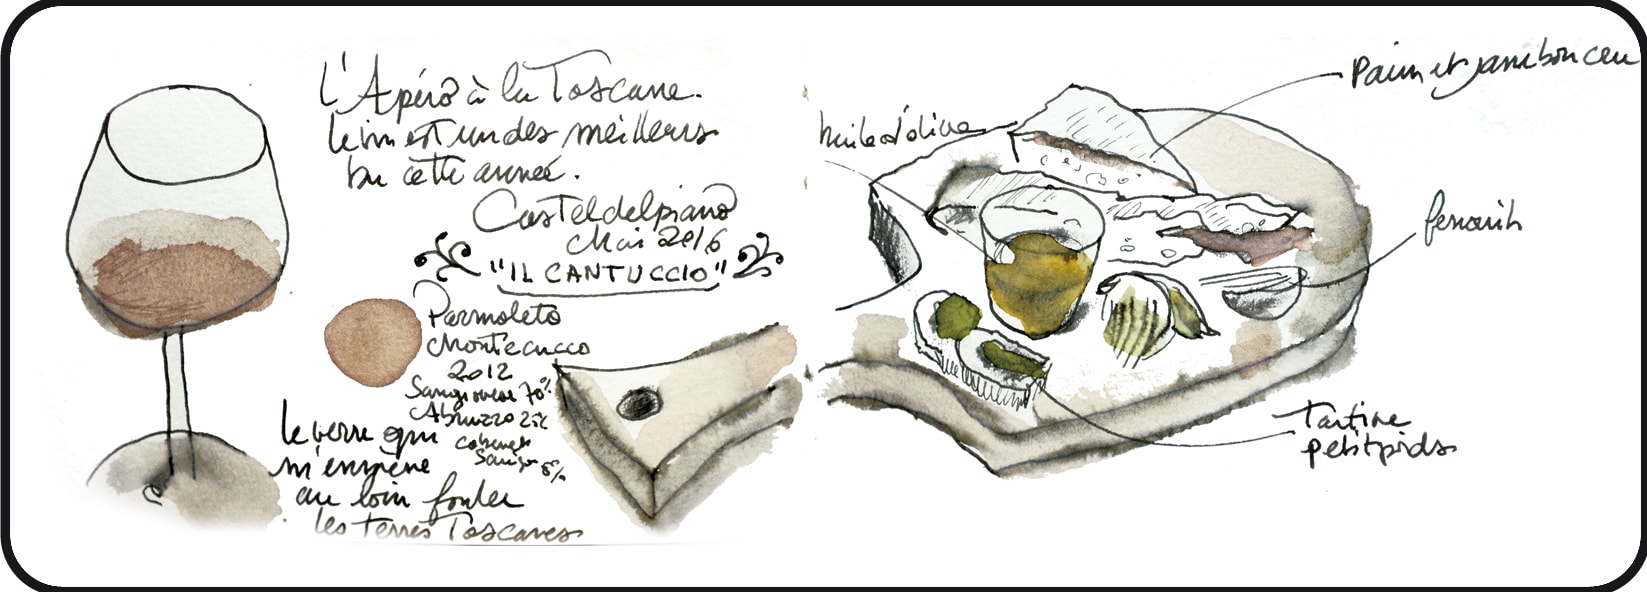 L'Apéro à la Toscane.
le vin est un des meilleurs
bu cette année.
Casteldelpiano
Mai 2016
"IL CANTUCCIO"
Parmoleto
Montecucco
2012
Sangiovese 70%
Abruzzo 25%
Cabernet
Sauvign 5%
le verre qui
m'emmène
au loin fouler
les terres Toscanes
huile d'olive
Pain et jambon cru
fenouil
Tartine
petits pois